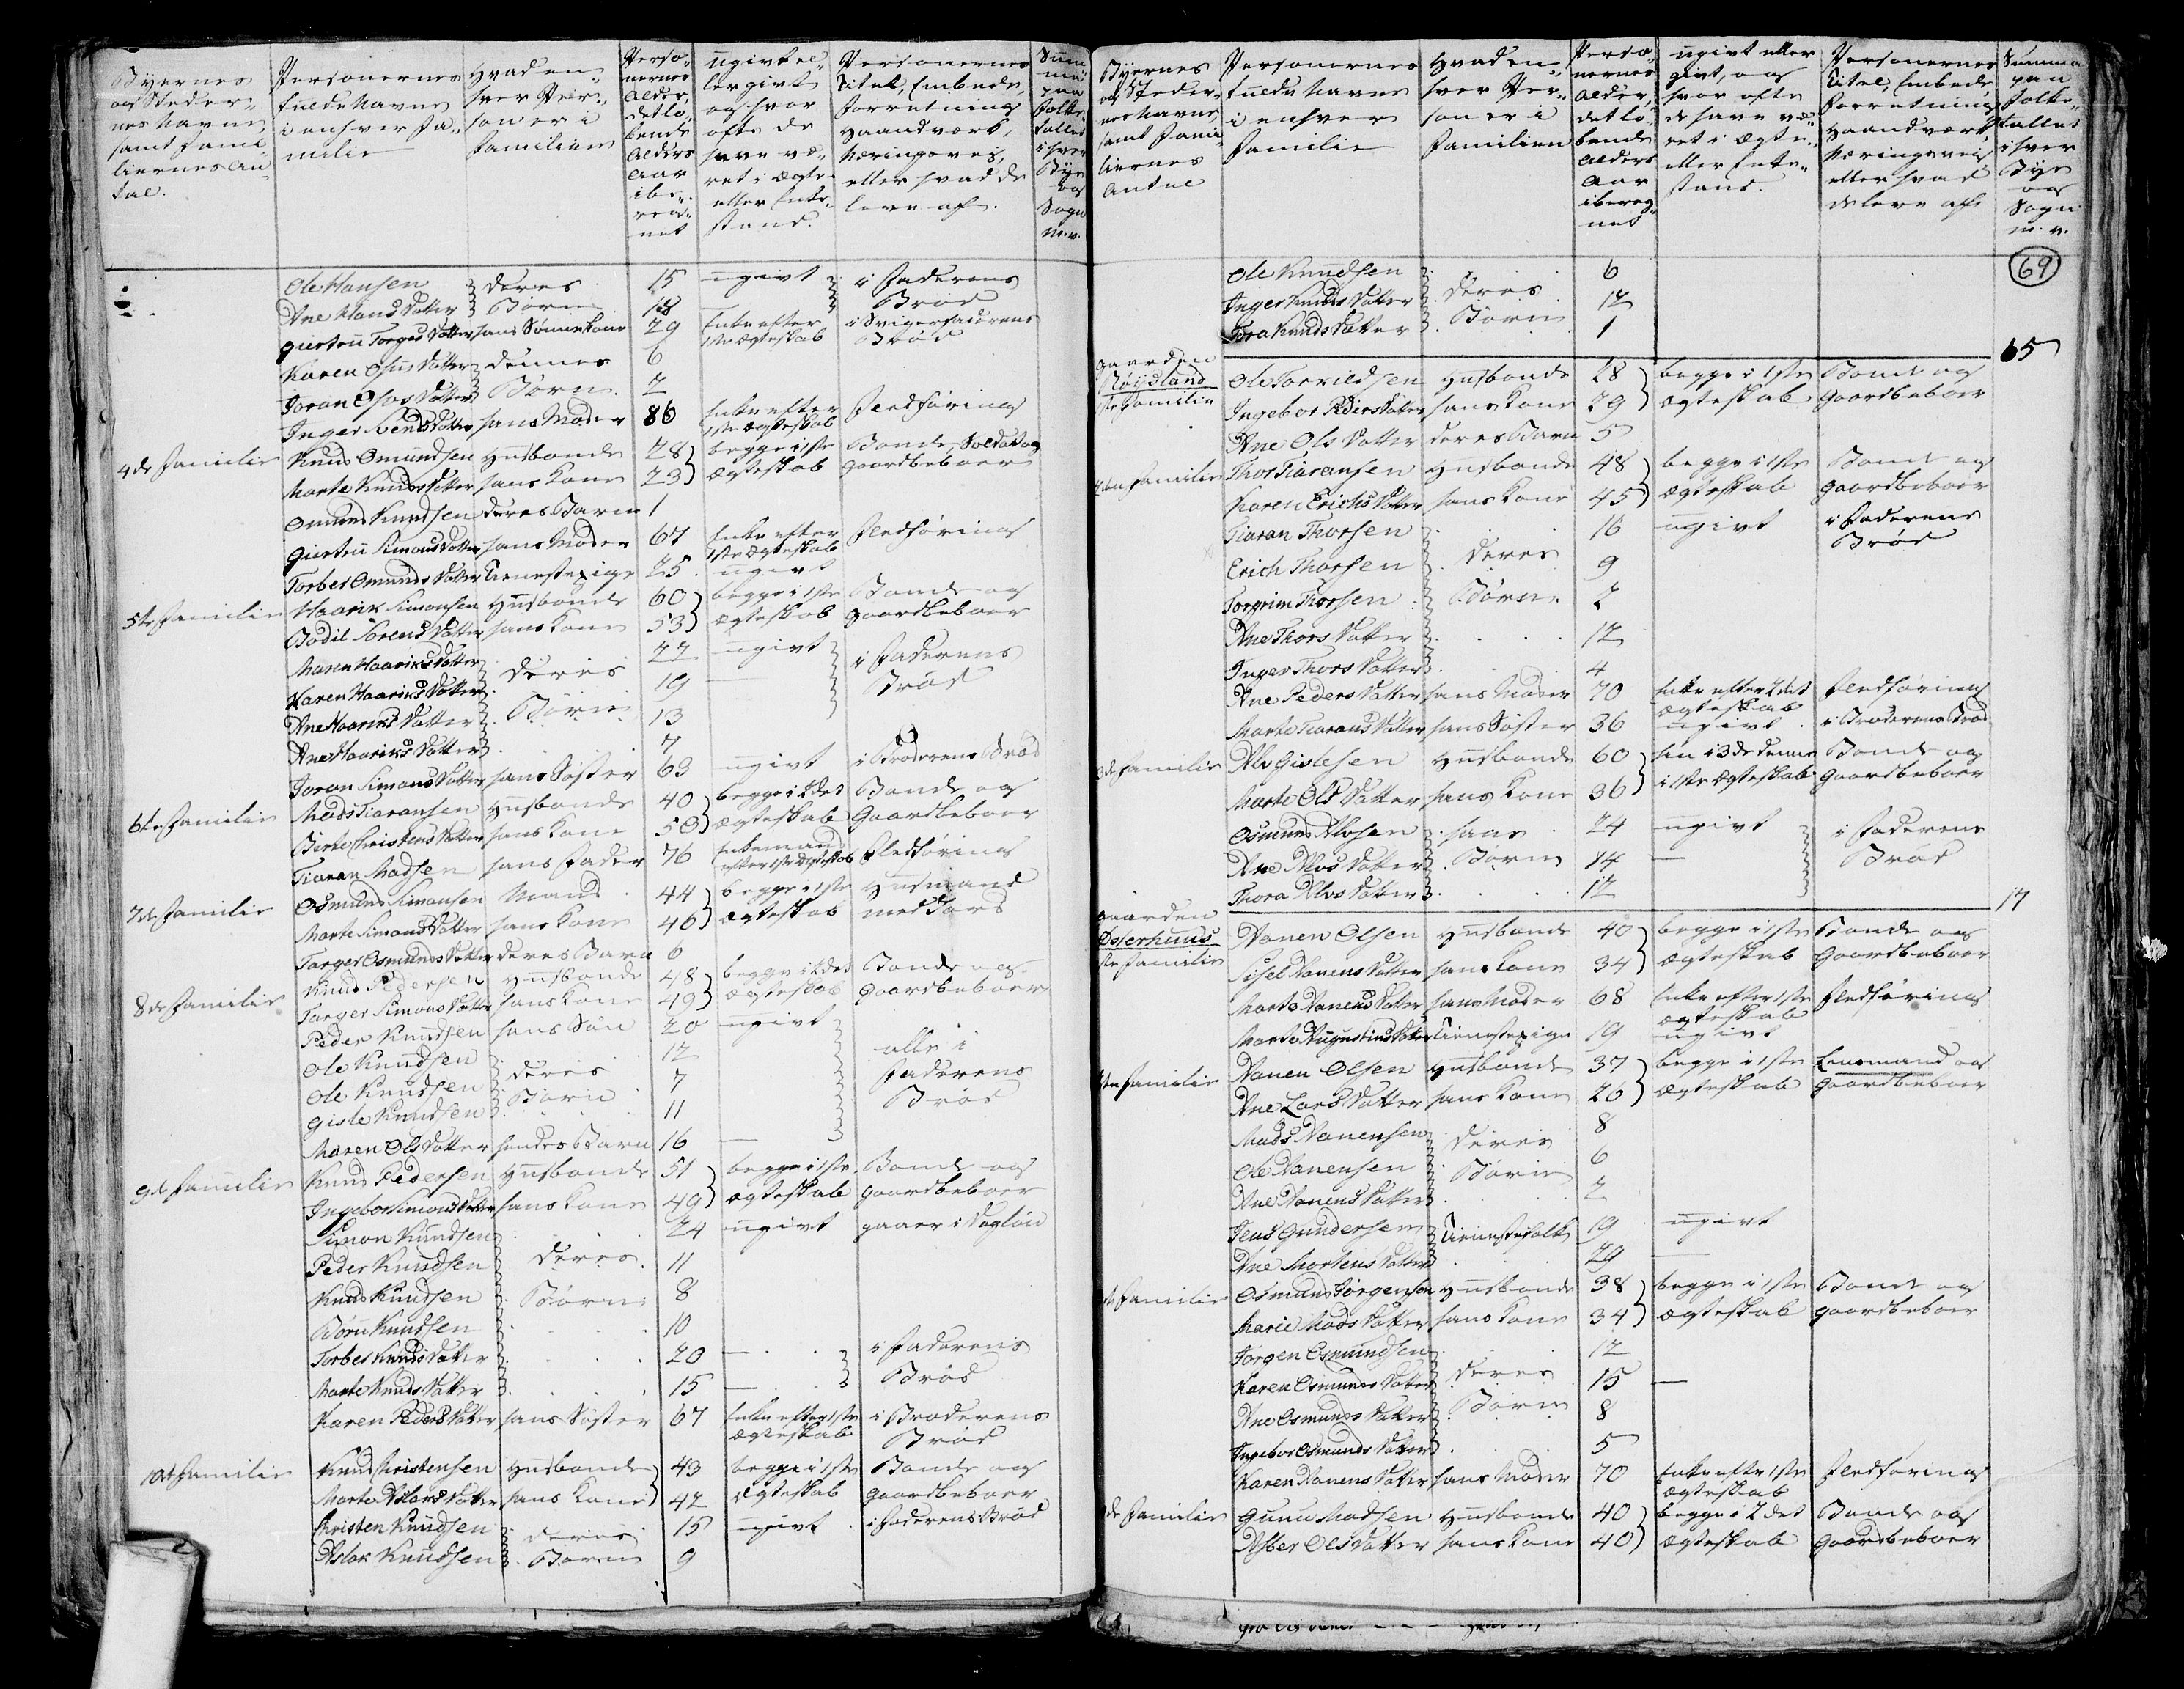 Byernes og Steders Navne, samt Familiernes Antal.
Personernes fulde Navne i enhver Familie
Hvad enhver Person er i Familien
Personernes Alder, det løbende Alders Aar iberegnet
ugivt eller givt, og hvor ofte de have været i Ægte- eller Enkestand.
Personernes Titel, Embede, Forretning, Haandværk, Næringsvei, eller hvad de leve af.
Summa paa Folketallet i hver Bye og Sogn m.v.
Ole Hansen deres 15 ugivt i Faderens
Ane Hans Datter Børn 18 — Brød
Giertru Torges Datter hans Sønnekone 29 Enke efter 1ste Ægteskab i Svigerfaderens Brød
Karen Osus Datter dennes 6
Joran Osus Datter Børn 2
Inger Svends Datter hans Moder 86 Enke efter 1ste Ægteskab Fledføring
4de Familie Knud Omundsen Husbonde 28 begge i 1ste Bonde, Soldat og
Marte Knuds Datter hans Kone 23 Ægteskab Gaardbeboer
Omund Knudsen deres Barn 1
Giertru Simons Datter hans Moder 67 Enke efter 1ste Ægteskab Fledføring
Torber Omunds Datter Tienestepige 25 ugivt
5te Familie Haarik Simonsen Husbonde 60 begge i 1ste Bonde og
Bodil Sorens Datter hans Kone 53 Ægteskab Gaardbeboer
Maren Haariks Datter deres 22 ugivt i Faderens
Karen Haariks Datter 19 — Brød
Ane Haariks Datter Børn 13
Ane Haariks Datter 7
Joran Simons Datter hans Søster 63 ugivt i Broderens Brød
6te Familie Mads Tiaransen Husbonde 40 begge i 2det Bonde og
Birte Christens Datter hans Kone 50 Ægteskab Gaardbeboer
Tiaran Madsen hans Fader 76 Enkemand efter 1ste Ægteskab Fledføring
7de Familie Osmund Simonsen Mand 44 begge i 1ste Husmand
Marte Simons Datter hans Kone 46 Ægteskab med Jord
Targer Osmunds Datter deres Barn 6
8de Familie Knud Pedersen Husbonde 48 begge i 2det Bonde og
Targer Simons Datter hans Kone 49 Ægteskab Gaardbeboer
Peder Knudsen hans Søn 20 ugivt
Ole Knudsen 12 alle i
Ole Knudsen deres 7 Faderens
Gisle Knudsen Børn 11 Brød
Maren Ols Datter hendes Barn 16 —
9de Familie Knud Pedersen Husbonde 51 begge i 1ste Bonde og
Ingebor Simons Datter hans Kone 49 Ægteskab Gaardbeboer
Simon Knudsen 24 ugivt gaaer i Dagløn
Peder Knudsen deres 11
Knud Knudsen Børn 8
Børn Knudsen 10
Torber Knuds Datter 20 — i Faderens
Marte Knuds Datter 15 — Brød
Karen Peders Datter hans Søster 67 Enke efter 1ste Ægteskab i Broderens Brød
10de Familie Knud Christensen Husbonde 43 begge i 1ste Bonde og
Marte Aslaks Datter hans Kone 42 Ægteskab Gaardbeboer
Kristen Knudsen deres 15 ugivt i Faderens Brød
Aslak Knudsen Børn 9
Byernes og Steders Navne, samt Familiernes Antal
Personernes fulde Navne i enhver Familie
Hvad enhver Person er i Familien
Personernes Alder, det løbende Alders Aar iberegnet
ugivt eller givt, og hvor ofte de have været i Ægte- eller Enkestand.
Personernes Titel, Embede, Forretning, Haandværk, Næringsvei eller hvad de leve af
Summa paa Folketallet i hver Bye og Sogn m.v.
69
Ole Knudsen deres 6
Inger Knuds Datter 12
Tora Knuds Datter Børn 1
65
Gaarden Røijsland
1ste Familie Ole Torkildsen Husbonde 28 begge i 1ste Bonde og
Ingebor Peders Datter hans Kone 29 Ægteskab Gaardbeboer
Ane Ols Datter deres Barn 5
2den Familie Thor Tiaransen Husbonde 48 begge i 1ste Bonde og
Karen Erichs Datter hans Kone 45 Ægteskab Gaardbeboer
Tiaran Thorsen 16 ugivt i Faderens Brød
Erich Thorsen deres 9
Torgrim Thorsen Børn 2
Ane Thors Datter 12
Inger Thors Datter 4
Ane Peders Datter hans Moder 70 Enke efter 2det Ægteskab Fledføring
Marte Tiarans Datter hans Søster 36 ugivt i Broderens Brød
3de Familie Alv Gislesen Husbonde 60 han i 3de denne Bonde og
Marte Ols Datter hans Kone 36 i 1ste Ægteskab Gaardbeboer
Osmund Alvsen hans 24 ugivt i Faderens
Ane Alvs Datter Børn 14 — Brød
Thora Alvs Datter 12
17
Gaarden Osterhuus
1ste Familie Nanen Olsen Husbonde 40 begge i 1ste Bonde og
Sisel Nanens Datter hans Kone 34 Ægteskab Gaardbeboer
Marte Nanens Datter hans Moder 68 Enke efter 1ste Ægteskab Fledføring
Marte Augustinus Datter Tienestepige 19 ugivt
2den Familie Nanen Olsen Husbonde 37 begge i 1ste Lensmand og
Ane Lars Datter hans Kone 26 Ægteskab Gaardbeboer
Mads Nanensen deres 8
Ole Nanensen Børn 6
Ane Nanens Datter 2
Jens Gundersen Tienestefolk 19 ugivt
Ane Mortens Datter 29 —
3de Familie Osmund Jørgensen Husbonde 38 begge i 1ste Bonde og
Marie Mads Datter hans Kone 34 Ægteskab Gaardbeboer
Jørgen Osmundsen 12
Karen Osmunds Datter deres 15 —
Ane Osmunds Datter Børn 8
Ingebor Osmunds Datter 5
Karen Nanens Datter hans Moder 70 Enke efter 1ste Ægteskab Fledføring
4de Familie Gunu Madsen Husbonde 40 begge i 2det Bonde og
Asber Ols Datter hans Kone 40 Ægteskab Gaardbeboer